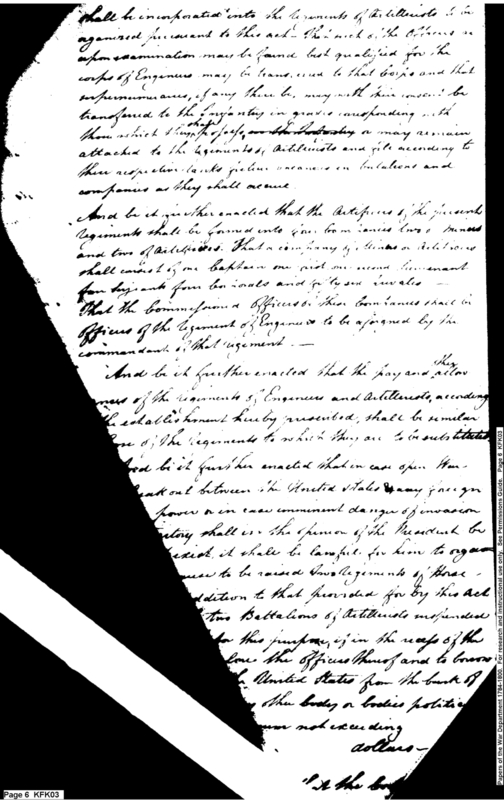 shall be incorporated into the regiments of Artillerists to be
organized pursuant to this act – That such of the Officers as
upon examination may be found best qualified for the
corps of Engineers may be transferred to that Corps and that
supernumeraries, if any there be, may with their consent be
transferred to the Infantry in grades corresponding with
those which they shall possess, or may remain
attached to the regiments of Artillerists and file according to
their respective ranks vacancies in battalions and
companies as they shall accrue.
And be it further enacted that the Artificers of the present
regiments shall be formed into four companies two of miners
and two of Artificers. That a company of Miners or Artificers
shall consist of one Captain one first one second Lieutenant
four Serjeants four Corporals and fifty six privates –
That the Commissioned Officers of these Companies shall be
Officers of the regiment of Engineers to be assigned by the
commandant of that regiment. –
And be it further enacted that the pay and they allow
ances of the regiments of Engineers and Artillerists, according
the establishment hereby prescribed, shall be similar
those of the regiments to which they are to be substituted
And be it further enacted that in case open War
break out between the United States & any foreign
power or in case imminent danger of invasion
territory shall in the opinion of the President be
exist, it shall be lawful for him to organ
cause to be raised two regiments of Horse
addition to that provided for by this Act
two Battalions of Artillerists suspended
for this purpose, if in the recess of the
the officers thereof and to borrow
the United States from the bank of
other body or bodies politic
sum not exceeding
dollars –
the
Page 6 KFK03
Papers of the War Department 1784-1800. For research and instructional use only. See Permissions Guide. Page 6 KFK03